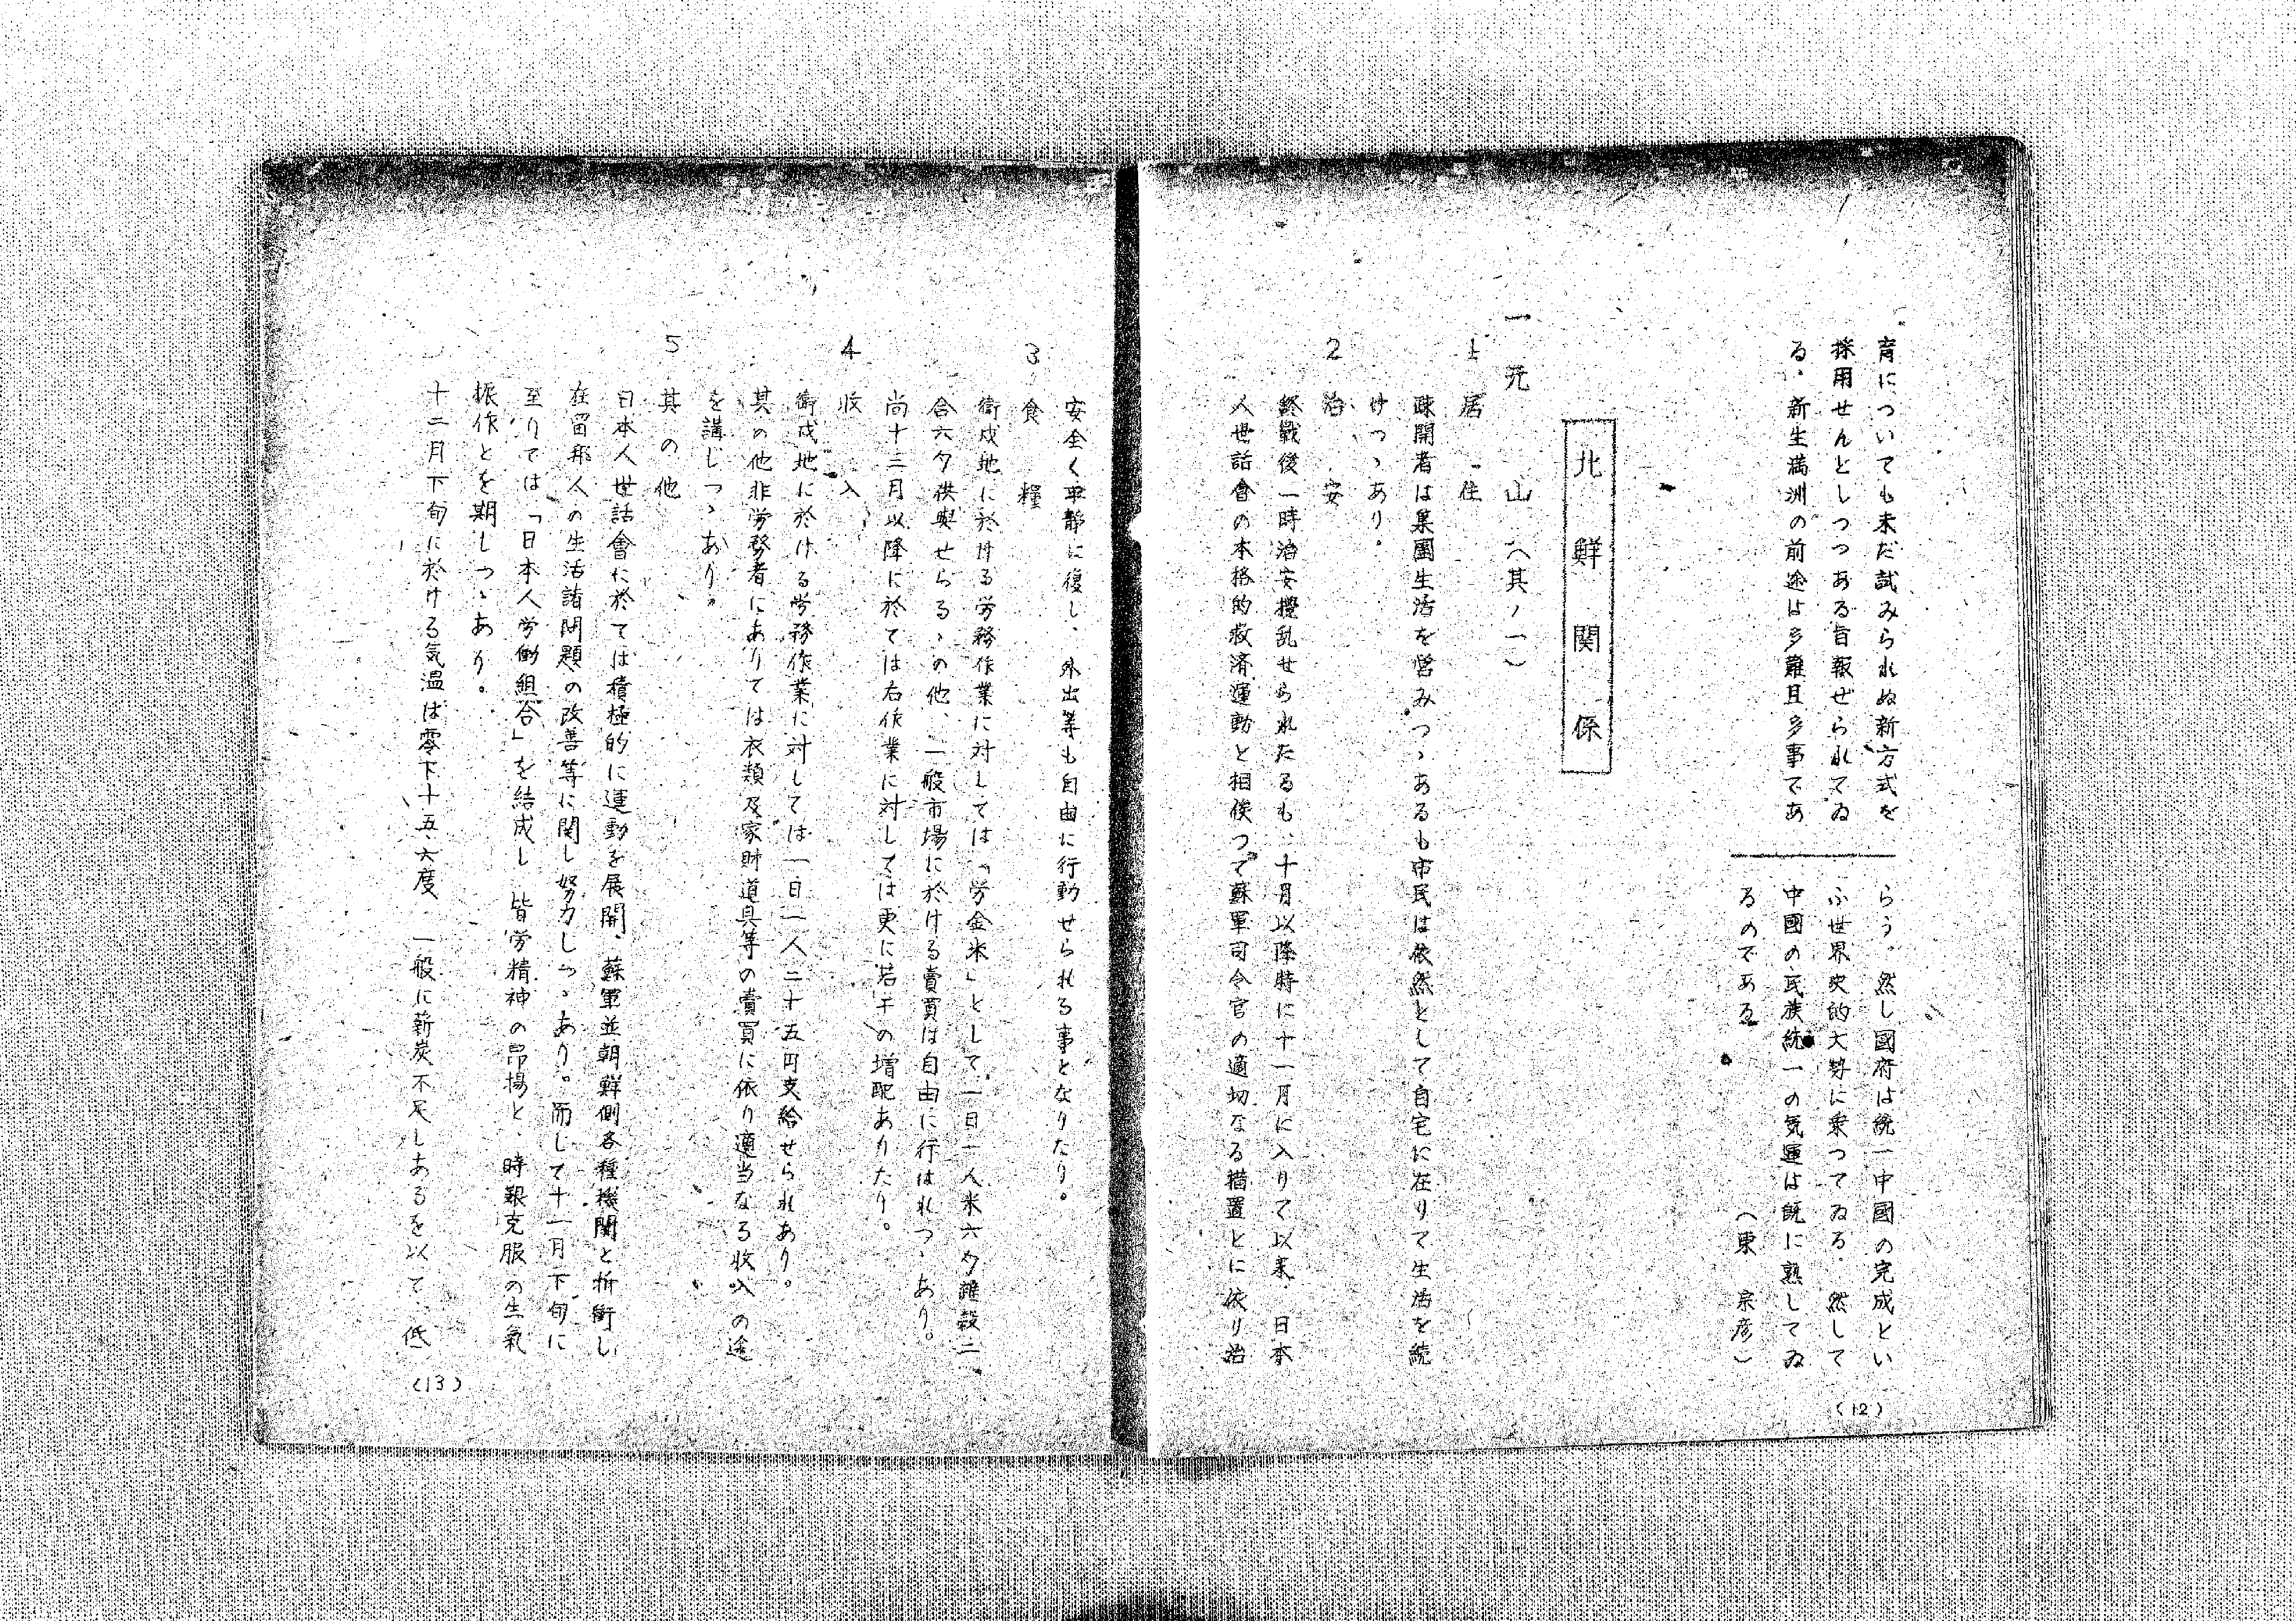 育についても未だ試みられぬ新方式を
採用せんとしつつある旨報ぜられてゐ
る。新生満洲の前途は多難且多事であ
らう。然し國府は統一中國の完成とい
ふ世界史的大勢に乗つてゐる。然して
中國の民族統一の気運は既に熟してゐ
るのである
（東 宗彦）
(12)
北鮮関係
一 元山（其ノ一）
1 居住
疎開者は集團生活を営みつゝあるも市民は依然として自宅に在りて生活を続
けつゝあり。
2 治安
終戰後一時治安攪乱せられたるも、十月以降特に十一月に入りて以来、日本
人世話會の本格的救済運動と相俟つて蘇軍司令官の適切なる措置とに依り治
安全く平静に復し、外出等も自由に行動せられる事となりたり。
3 食糧
衛戍地に於ける労務作業に対しては「労金米」として一日一人米六夕雑穀二
合六夕供與せらるゝの他、一般市場に於ける賣買は自由に行はれつゝあり。
尚十二月以降に於ては右作業に対しては更に若干の増配ありたり。
4 收入
衛戍地に於ける労務作業に対しては一日一人二十五円支給せられあり。
其の他非労務者にありては衣類及家財道具等の賣買に依り適当なる收入の途
を講じつゝあり。
5 其の他
日本人世話會に於ては積極的に運動を展開、蘇軍並朝鮮側各種機関と折衝し
在留邦人の生活諸問題の改善等に関し努力しつゝあり。而して十一月下旬に
至りては「日本人労働組合」を結成し皆労精神の昂揚と、時艱克服の生氣
振作とを期しつゝあり。
十二月下旬に於ける気温は零下十五、六度 一般に薪炭不足しあるを以て、低
(13)